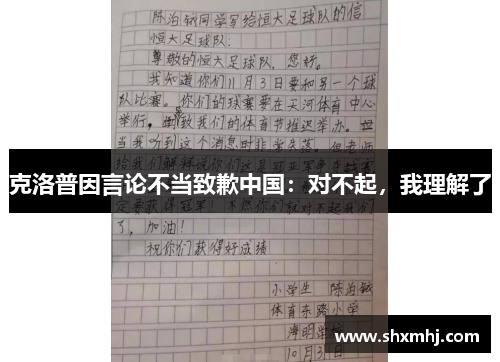 陈泊钺同学写给恒大足球队的信
恒大足球队:
尊敬的恒大足球队,您好。
我知道你们11月3日要和另一个球
队比赛。你们的球赛要在天河体育中心
举行,导致我们的体育节推迟举办。但
当我听到这个消息时非常失落。但老师
克洛普因言论不当致歉中国:对不起,我理解了
定要获得冠军!不然你们就对不起我们
了,加油!
祝你们获得好成绩
小学生 陈泊
体育东路小学
海明学校
10月31日
www.shxmhj.com